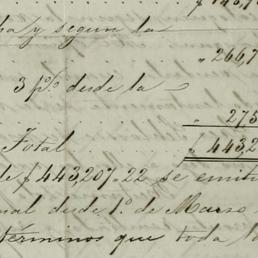 ha y segun la
" 266,7
3 p% desde la
" 275
Total $ 443,2
de $443,207.22 se emiti
nal desde 1º de Marzo
términos que toda la